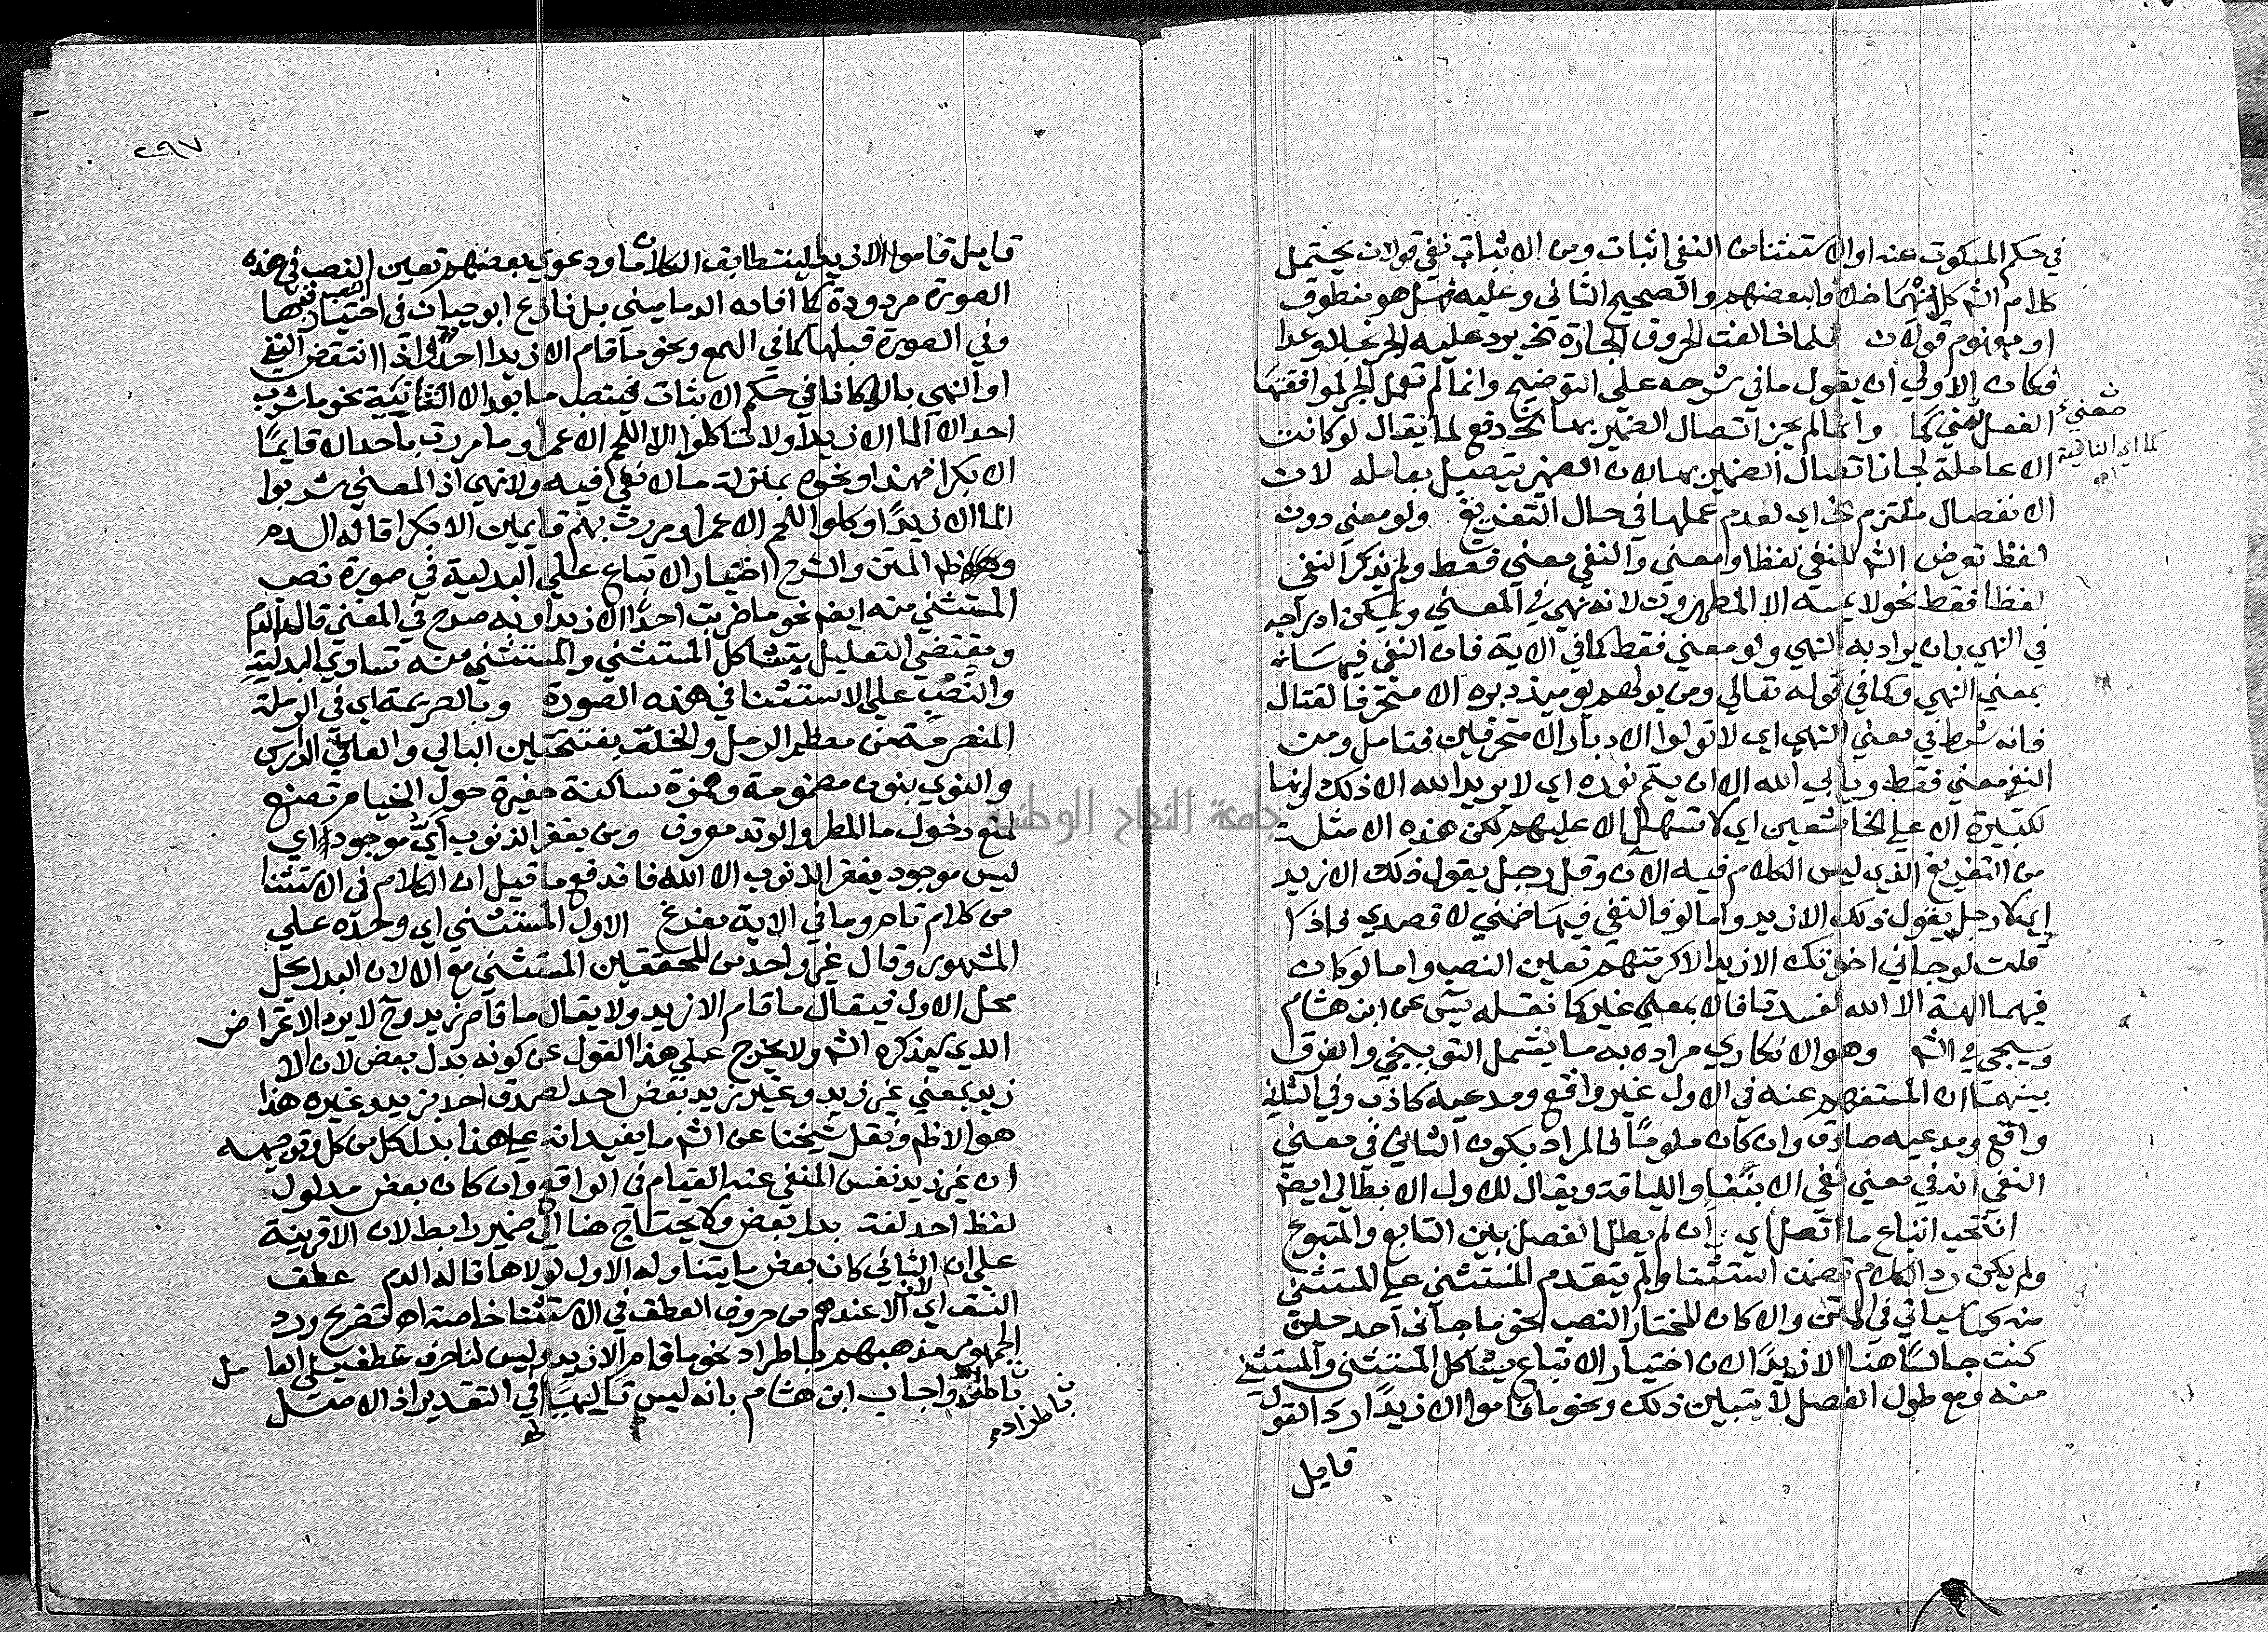 في حكم المسكوت عنه او الاستثنا من النفي اثبات ومن الاثبات نفي قولان يحتمل
كلام الشم كلا منهما خلافا لبعضهم والصحيح الثاني وعليه فهل هو منطوق
او مفهوم قولان فلما خالفت الحروف الجارة نخ يرد عليه الجر بخلا وعدا
فكان الاولي ان يقول ما في شرحه علي التوضيح وانما لم تعمل الجر لموافقتها
الفعل معني كما وانما لم يجز اتصال الضمير بها نخ دفع لما يقال لو كانت
الا عاملة لجاز اتصال الضمير بها لان الضمير يتصل بعامله لان
الانفصال ملتزم نخ اي لعدم عملها في حال التفريغ ولو معني دون
لفظ تعرض الشم للنفي لفظا ومعني والنفي معني فقط ولم يذكر النفي
لفظا فقط نحو لا يمسه الا المطهرون لانه نهي في المعني ويمكن ادراجه
في النهي بان يراد به النهي ولو معني فقط كما في الاية فان النفي فيها
بمعني النهي وكما في قوله تعالي ومن يولهم يوميذ دبره الا متحرفا لقتال
فانه شرط في معني النهي اي لا تولوا الادبار الا متحرفين فتامل ومن
النفي معني فقط ويابي الله الا ان يتم نوره اي لا يريد الله الا ذلك وانها
لكبيرة الا علي الخاشعين اي لا تسهل الا عليهم لكن هذه الامثلة
من التفريغ الذي ليس الكلام فيه الان وقل رجل يقول ذلك الا زيد
اي لا رجل يقول ذلك الا زيد واما لو فالنفي فيها ضمني لا قصدي فاذا
قلت لو جاني اخوتك الا زيدا لاكرمتهم تعين النصب واما لو كان
فيهما الهة الا الله لفسدتا فالا بمعني غير كما نقله يس عن ابن هشام
وسيجي في الشم وهو الانكاري مراده به ما يشمل التوبيخي والفرق
بينهما ان المستفهم عنه في الاول غير واقع ومدعيه كاذب وفي الثاني
واقع ومدعيه صادق وان كان ملوما فالمراد بكون الثاني في معني
النفي انه في معني نفي الانبغا واللياقة ويقال للاول الابطالي ايضا
انتخب اتباع ما اتصل اي ان لم يطل الفصل بين التابع والمتبوع
ولم يكن رد الكلام تضمن استثنا ولم يتقدم المستثني علي المستثني
منه كما سياتي في المتن والا كان المختار النصب نحو ما جاني احد حين
كنت جالسا هنا الا زيدا لان اختيار الاتباع يشاكل المستثني والمستثني
منه ومع طول الفصل لا يتبين ذلك ونحو ما قاموا الا زيدا رد القول
قايل
معني
كما اي النافية
اهـ
٢٩٧
قايل قاموا الا زيدا ليتطابق الكلامان ودعوي بعضهم تعين النصب في هذه
الصورة مردودة كما افاده الدماميني بل نازع ابو حيان في اختيار النصب فيها
وفي الصورة قبلها كما في الهمع ونحو ما قام الا زيدا احد واذا انتقض النفي
او النهي بالا كانا في حكم الاثبات فينصب ما بعد الا الثانية نحو ما شرب
احد الا الما الا زيدا ولا تاكلوا الا اللحم الا عمرا وما مررت باحد الا قايما
الا بكرا فهذا ونحوه بمنزلة ما لا نفي فيه ولا نهي اذ المعني شربوا
الما الا زيدا وكلوا اللحم الا عمرا ومررت بهم قايمين الا بكرا قاله السم
وظ المتن والشرح اختيار الاتباع علي البدلية في صورة نصب
المستثني منه ايضا نحو ما ضربت احدا الا زيدا وبه صرح في المغني قال الدم
ومقتضي التعليل بتشاكل المستثني والمستثني منه تساوي البدلية
والنصب علي الاستثنا في هذه الصورة وبالصريمة اي في الرملة
المنصرمة من معظم الرمل والخلق بفتحتين البالي والعافي الدارس
والنوي بنون مضمومة وهمزة ساكنة حفيرة حول الخيام تصنع
لمنع دخول ما المطر والوتد معروف ومن يغفر الذنوب اي موجود اي
ليس موجود يغفر الذنوب الا الله فاندفع ما قيل ان الكلام في الاستثنا
من كلام تام وما في الاية مفرغ الاول المستثني اي وحده علي
المشهور وقال غير واحد من المحققين المستثني مع الا لان البدل يحل
محل الاول فيقال ما قام الا زيد ولا يقال ما قام زيد وح لا يرد الاعتراض
الذي يذكره الشم ولا يخرج علي هذا القول عن كونه بدل بعض لان الا
زيد بمعني غير زيد وغير زيد بعض احد لصدق احد بزيد وغيره هذا
هو الاظهر ونقل شيخنا عن الشم ما يفيد انه علي هذا بدل كل من كل وتوجيهه
ان غير زيد نفس المنفي عنه القيام في الواقع وان كان بعض مدلول
لفظ احد لغة بدل بعض ولا يحتاج هنا الي ضمير رابط لان الا قرينة
علي ان الثاني كان بعض ما يتناوله الاول لولاها قاله الدم عطف
النسق اي لان الا عندهم من حروف العطف في الاستثنا خاصة اهـ تصريح ورد
الجمهور مذهبهم باطراد نحو ما قام الا زيد وليس لنا حرف عطف يلي العامل
واجاب ابن هشام بانه ليس تاليها في التقدير اذ الاصل
باطراد
جامعة النجاح الوطنية